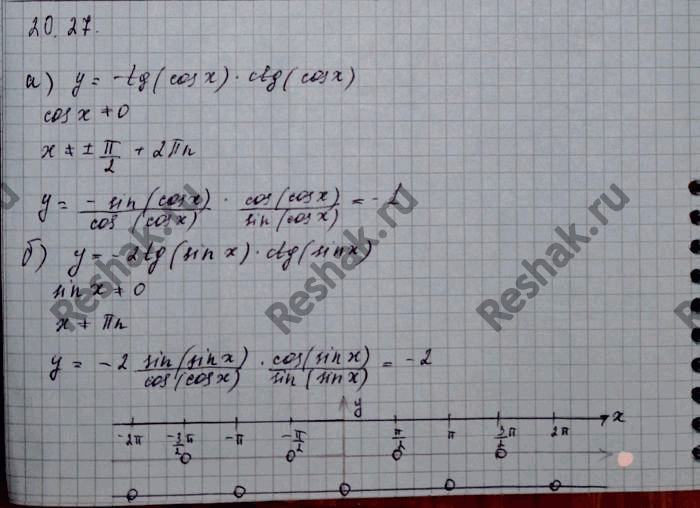 20.27.
а) y = -tg(cos x) · ctg(cos x)
cos x ≠ 0
x ≠ ± π/2 + 2πn
y = - sin(cos x)/cos(cos x) · cos(cos x)/sin(cos x) = -1
б) y = -2tg(sin x) · ctg(sin x)
sin x ≠ 0
x ≠ πn
y = -2 sin(sin x)/cos(cos x) · cos(sin x)/sin(sin x) = -2
y
x
-2π -3/2π -π -π/2 π/2 π 3/2π 2π
Reshak.ru
Reshak.ru
Reshak.ru